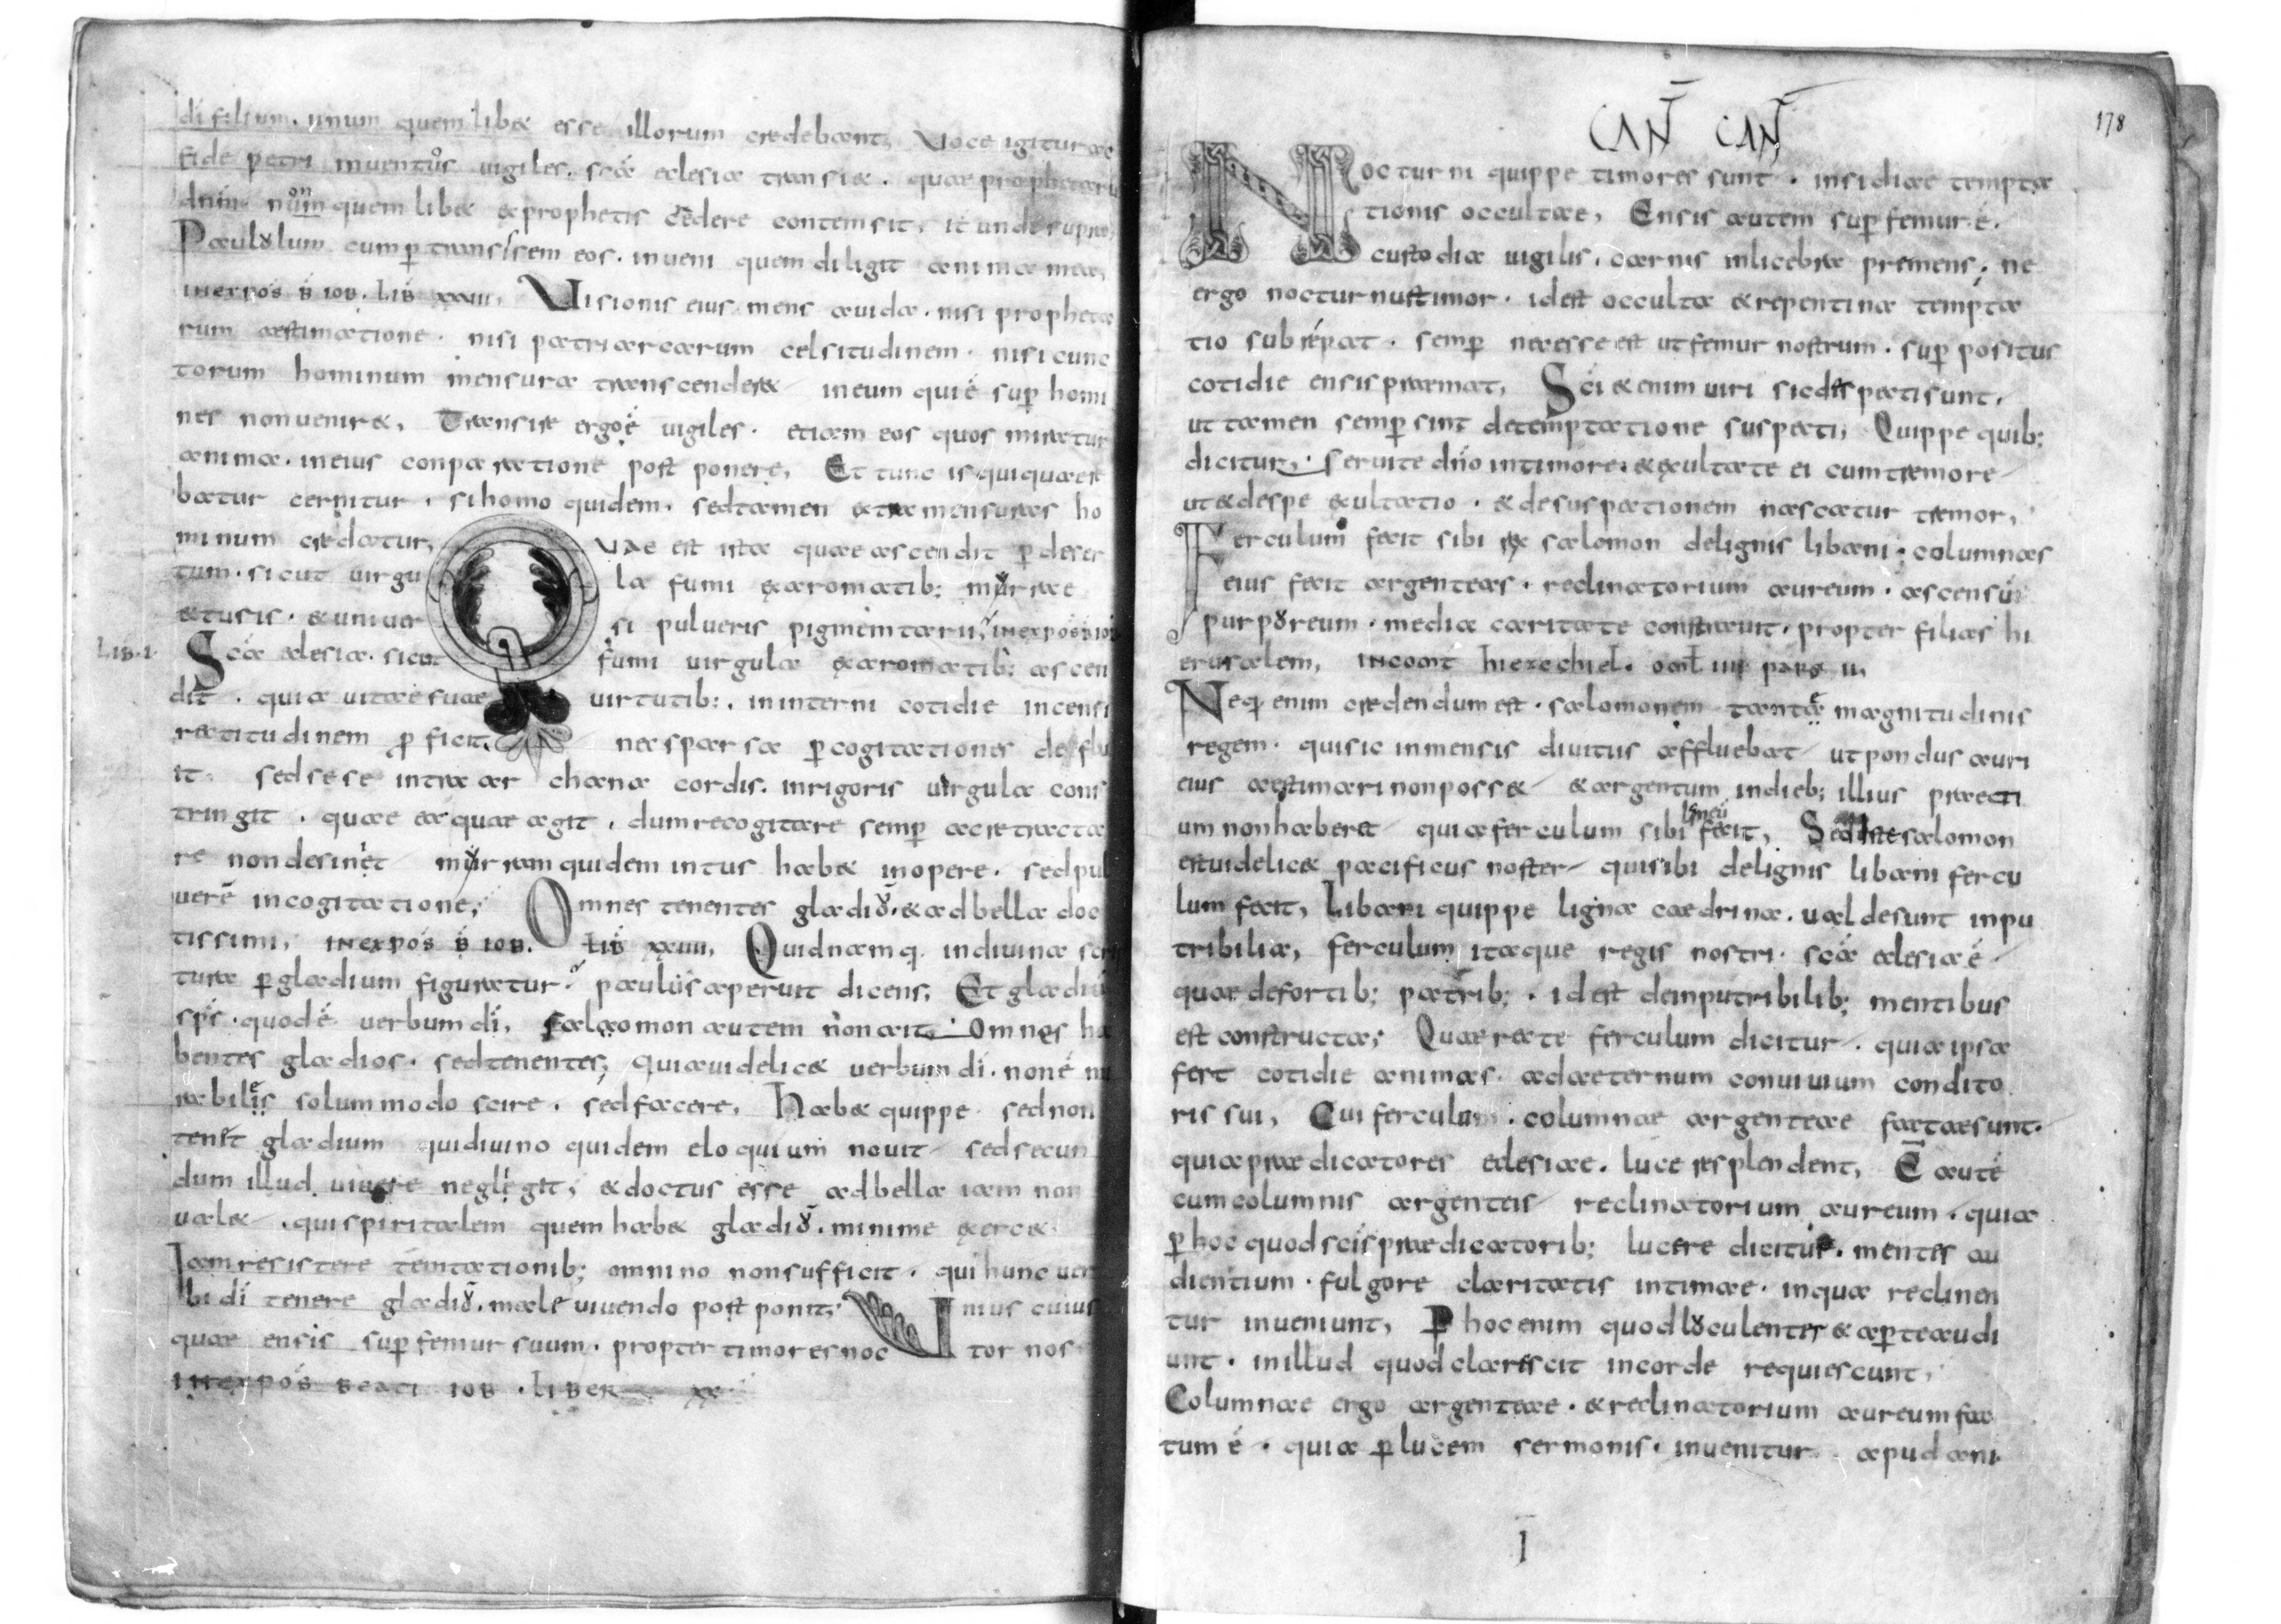 di filium. unum quemlibet esse illorum credebant, Voce igitur ac
fide petri inventus vigiles. scæ eclesiæ transiet. quæ prophetaru
dnm. non quemlibet ex prophetis cedere contemsit, it unde supra,
Paululum cum ptransissem eos. inveni quem diligit anima mea,
IN EXPOS B IOB. LIB XXVII, Visionis eius mens avida. nisi propheta
rum æstimatione. nisi patriarcarum celsitudinem. nisi cunc
torum hominum mensura transcenderet ineum qui ē sup homi
nes non veniret, Transire ergo ē vigiles. etiam eos quos miratur
anima. in eius conparatione post ponere, Et tunc is qui quære
batur cernitur. si homo quidem. sed tamen extra mensuras ho
minum credatur, Quae est ista quae ascendit p deser
tum. sicut virgula fumi ex aromatib; myrræ
et tusis. et universi pulveris pigmentarii, IN EXPOS B IOB
LIB. I. Scæ eclesiæ. sicut fumi virgula ex aromatib; ascen
dit. quia vitæ suæ virtutib;. in interni cotidie incensi
rectitudinem pficit. nec sparsa p cogitationes defflu
it. sed sese intra archana cordis. in rigoris virgula cons
tringit. quæ ea quæ agit. dum recogitare semp ac retracta
re non desinet myrram quidem intus habet in opere. sed pul
verē in cogitatione; Omnes tenentes gladiū. et ad bella doc
tissimi, IN EXPOS B IOB. LIB XXVIIII, Quidnamq. in divina scri
tura p gladium figuratur. paulus aperuit dicens, Et gladiu
sps. quod ē verbum di, Salomon autem non ait. Omnes ha
bentes gladios. sed tenentes; quia videlicet verbum di. non ē mi
rabiles solum modo scire. sed facere, Habet quippe sed non
tenit gladium qui divino quidem eloquium novit sed secun
dum illud vivere neglegit, et doctus esse ad bella iam non
valet. qui spiritalem quem habet gladiū. minime exercet
Iam resistere temtationib; omnino non sufficit. qui hunc ver
bi di tenere gladiū. male vivendo post ponit; Unius cuius
quæ ensis sup femur suum. propter timores noctor nos
IN EXPOS BEATI IOB. LIBER XX
CAN̄ CAN̄
178
Nocturni quippe timores sunt. insidiæ tempta
tionis occultæ, Ensis autem sup femur ē.
custodia vigilis. carnis inlicebra premens; ne
ergo nocturnus timor. id est occulta et repentina tempta
tio subrepat. semp necesse est ut femur nostrum. sup positus
cotidie ensis præmat, Sci etenim viri sic dispecti sunt.
ut tamen semp sint de temptatione suspecti, Quippe quib;
dicitur, Servite dno in timore. et exultate ei cum tremore
ut et de spe exultatio. et de suspectionem nascatur tremor,
Ferculum fecit sibi rex salomon de lignis libani; columnas
eius fecit argenteas. reclinatorium aureum. ascensū
purpureum. media caritate constravit. propter filias hi
erusalem, IN COMT hiezechiel. OML IIII PARS II,
Neq enim credendum est. salomonem tantæ magnitudinis
regem. qui sic inmensis divitiis affluebat ut pondus auri
eius æstimari non posset et argentum in dieb; illius præcti
um non haberet quia ferculum sibi ligneū fecit, Sed iste salomon
est videlicet pacificus noster qui sibi de lignis libani fercu
lum fecit, Libani quippe ligna cædrina. valde sunt inpu
tribilia, ferculum itaque regis nostri. scæ eclesiæ ē
quæ de fortib; patrib;. id est de inputribilib; mentibus
est constructa; Quæ recte ferculum dicitur. quia ipsa
fert cotidie animas. ad æternum convivium condito
ris sui, Cui ferculum. columnæ argenteæ factæ sunt.
quia prædicatores eclesiæ. luce resplendent, E autē
cum columnis argenteis reclinatorium aureum. quia
p hoc quod scis prædicatorib; lucere dicitur. mentes au
dientium. fulgore claritatis intimæ. in qua reclinen
tur inveniunt, P hoc enim quod luculenter et apte audi
unt. in illud quod clarescit in corde requiescunt,
Columnæ ergo argenteæ. et reclinatorium aureum fac
tum ē. quia p lucem sermonis. invenitur apud ani
I